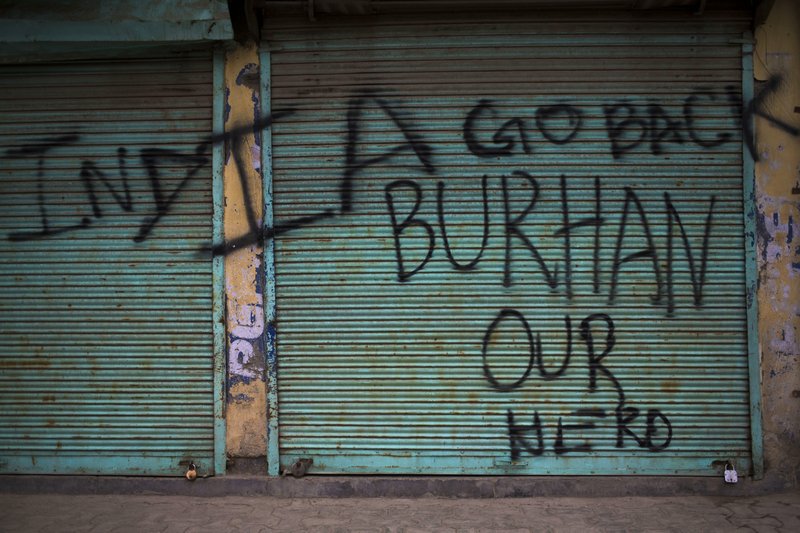 INDIA GO BACK
BURHAN
OUR
HERO